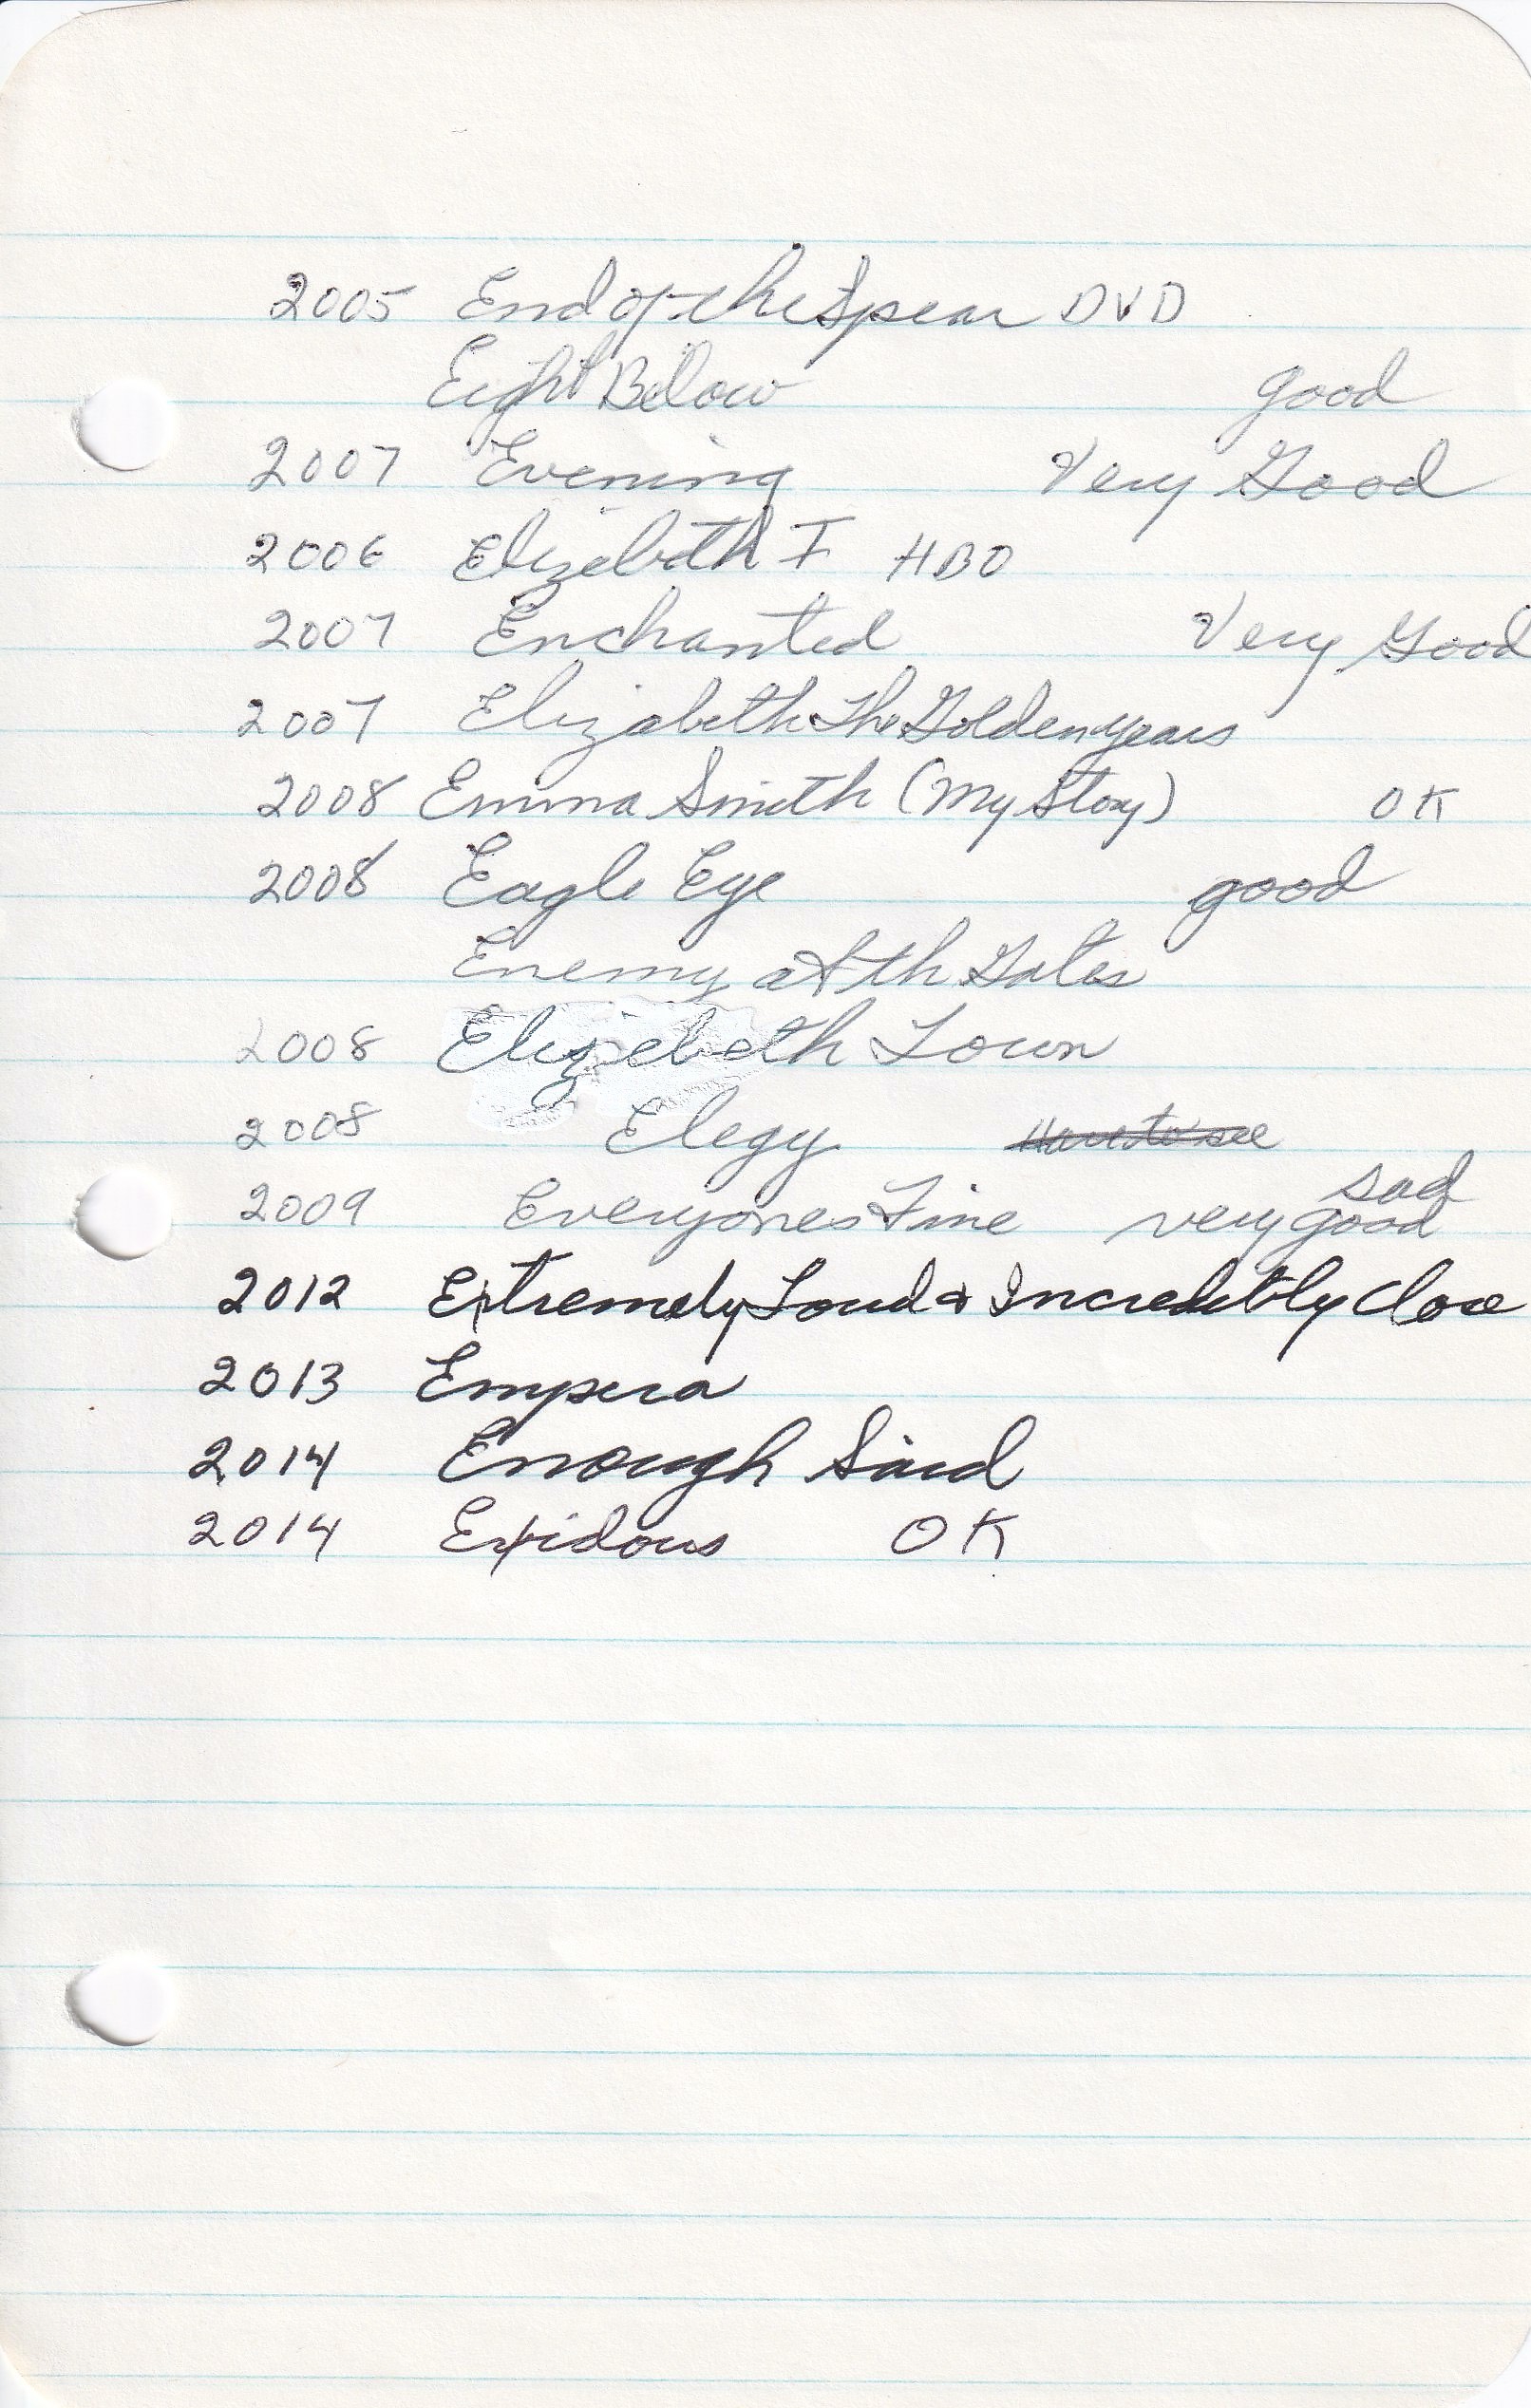 2005 End of the Spear DVD
Eight Below good
2007 Evening Very Good
2006 Elizebeth I HBO
2007 Enchanted Very Good
2007 Elizabeth The Golden years
2008 Emma Smith (My Story) OK
2008 Eagle Eye good
Enemy at th Gates
2008 Elizebeth Town
2008 Elegy Have to see
2009 Everyones Fine very good sad
2012 Extremely Loud & Incredibly Close
2013 Empera
2014 Enough Said
2014 Exidous OK